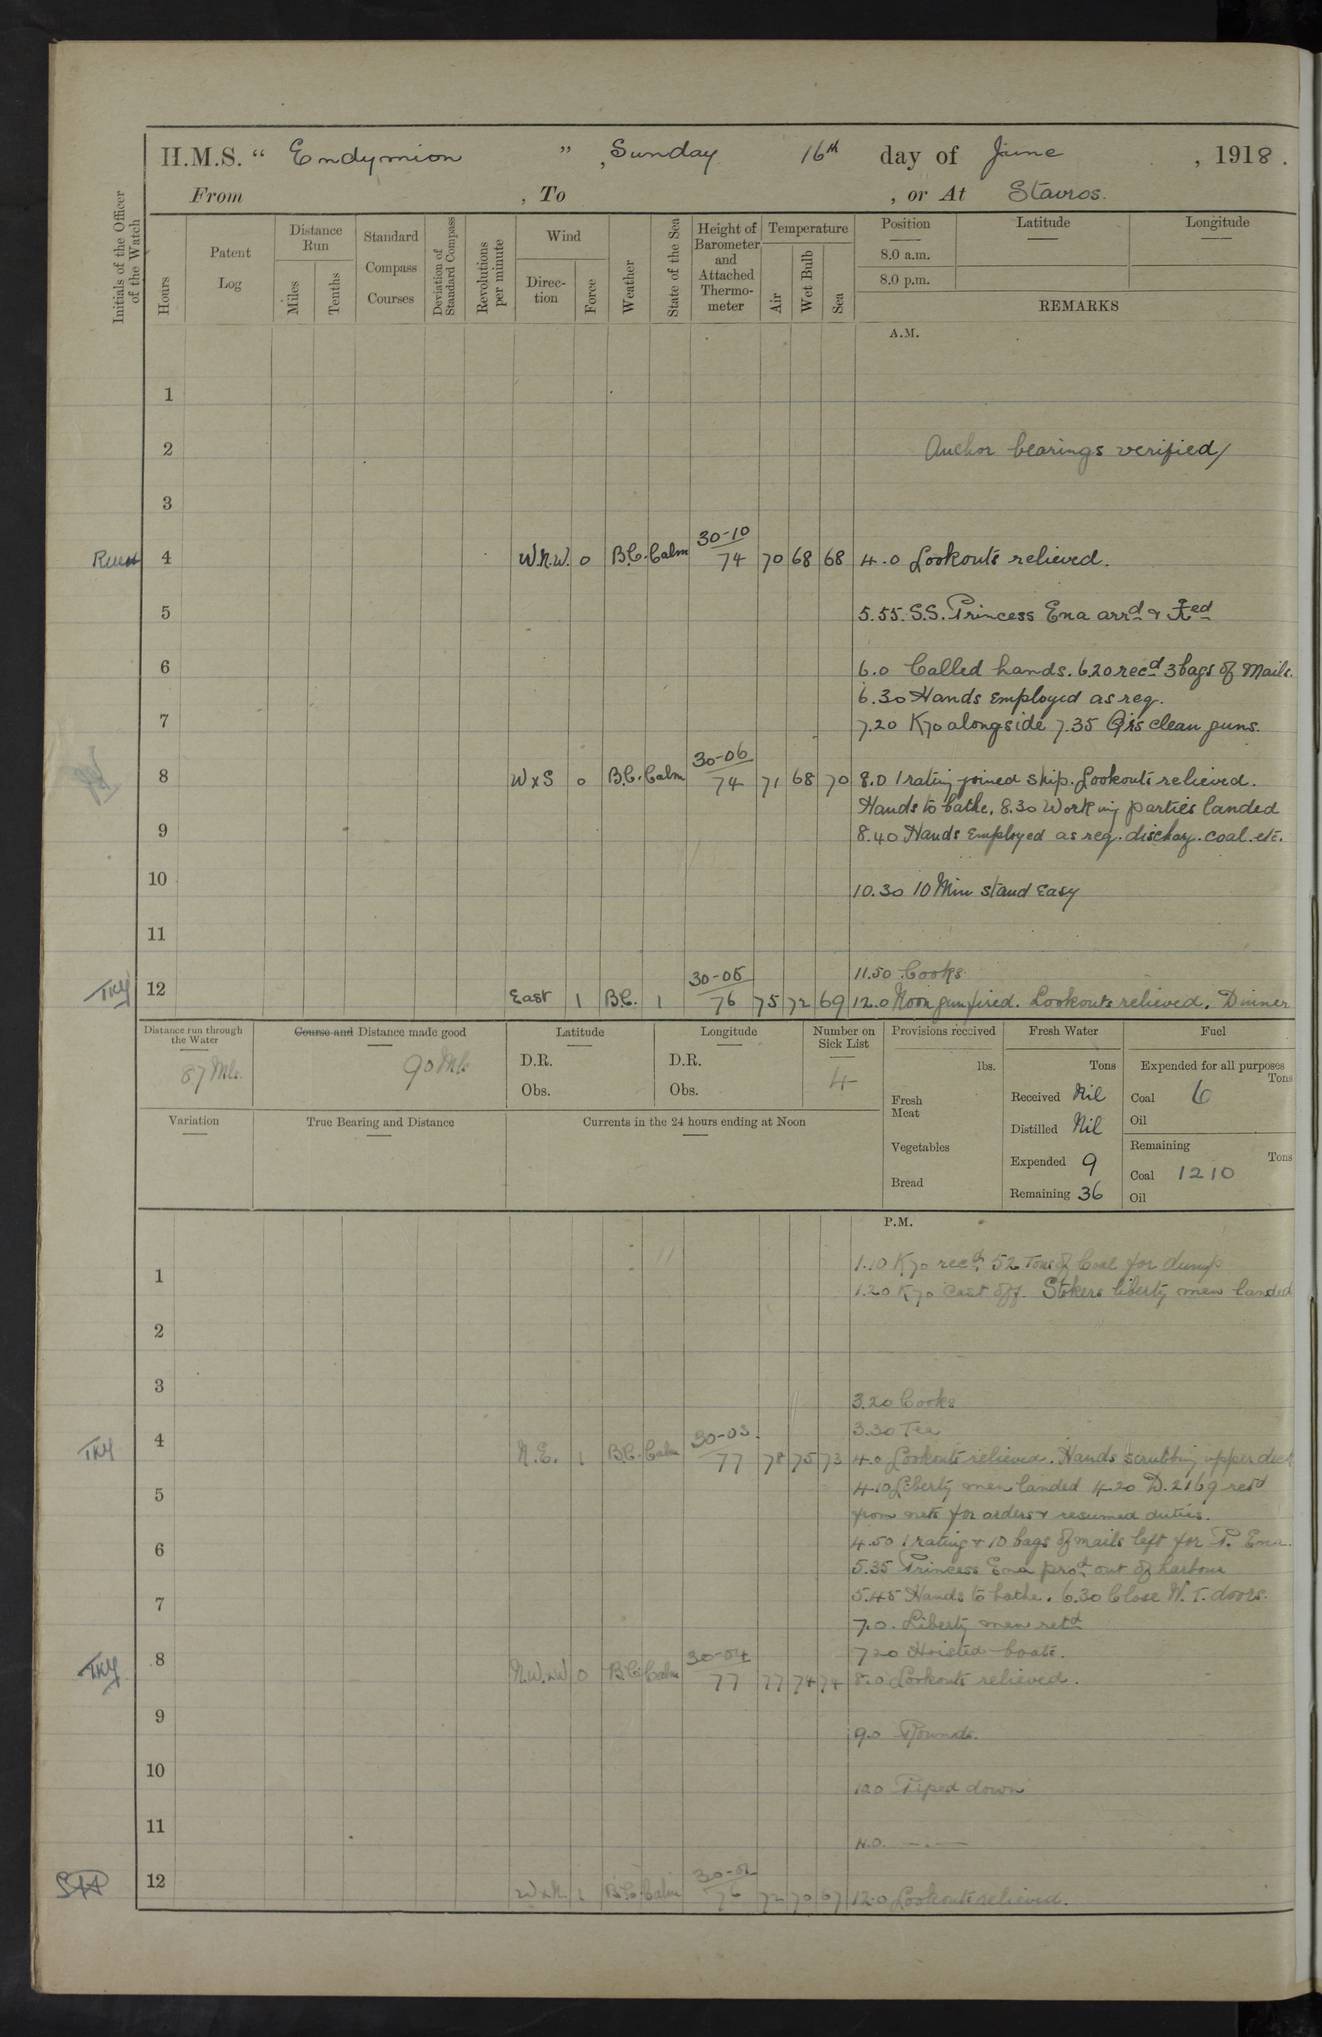 H.M.S. " Endymion " , Sunday 16th day of June , 1918 .
From , To , or At Stavros.
Initials of the Officer of the Watch
Hours
Patent Log
Distance Run
Miles
Tenths
Standard Compass Courses
Deviation of Standard Compass
Revolutions per minute
Wind
Direc-tion
Force
Weather
State of the Sea
Height of Barometer and Attached Thermo-meter
Temperature
Air
Wet Bulb
Sea
Position Latitude Longitude
8.0 a.m.
8.0 p.m.
REMARKS
A.M.
1
2 Anchor bearings verified/
3
4 W.N.W. 0 B.C. Calm 30-10 74 70 68 68 4.0 Lookouts relieved.
5 5.55. S.S. Princess Ena arrd &
6 6.0 Called hands. 6.20 recd 3 bags of Mails.
6.30 Hands Employed as req.
7 7.20 K70 alongside 7.35 Qrs clean guns.
8 W x S 0 B.C. Calm 30-06 74 71 68 70 8.0 1 rating joined ship. Lookouts relieved.
Hands to bathe. 8.30 Working parties landed
9 8.40 Hands Employed as req. discharg. coal. etc.
10 10.30 10 Min stand Easy
11
11.50 Cooks
TKY 12 East 1 B.C. 1 30-05 76 75 72 69 12.0 Noon gun fired. Lookouts relieved. Dinner
Distance run through the Water
87 Mls.
Course and Distance made good
90 Mls
Latitude
D.R.
Obs.
Longitude
D.R.
Obs.
Number on Sick List
4
Provisions received
lbs.
Fresh Meat
Vegetables
Bread
Fresh Water
Tons
Received Nil
Distilled Nil
Expended 9
Remaining 36
Fuel
Expended for all purposes
Tons
Coal 6
Oil
Remaining
Tons
Coal 1210
Oil
Variation
True Bearing and Distance
Currents in the 24 hours ending at Noon
P.M.
1 1.10 K70 recd 52 Tons of Coal for dump
1.20 K70 cast off. Stokers liberty men landed
2
3 3.20 Cooks
3.30 Tea
TKY 4 N.E. 1 B.C. Calm 30-03 77 78 75 73 4.0 Lookouts relieved. Hands scrubbing upper deck
5 4.10 Liberty men landed 4.20 D.2169 retd
from nets for orders & resumed duties.
6 4.50 1 rating & 10 bags of mails left for P. Ena.
5.35 Princess Ena prod out of harbour
7 5.45 Hands to bathe. 6.30 Close W.T. doors.
7.0. Liberty men retd
8 7.20 Hoisted boats.
TKY N.W.xW 0 B.C. Calm 30-04 77 77 74 74 8.0 Lookouts relieved.
9 9.0 Rounds.
10 10.0 Piped down
11
12 W x N. 1 B.C. Calm 30-02 76 72 70 67 12.0 Lookouts relieved.